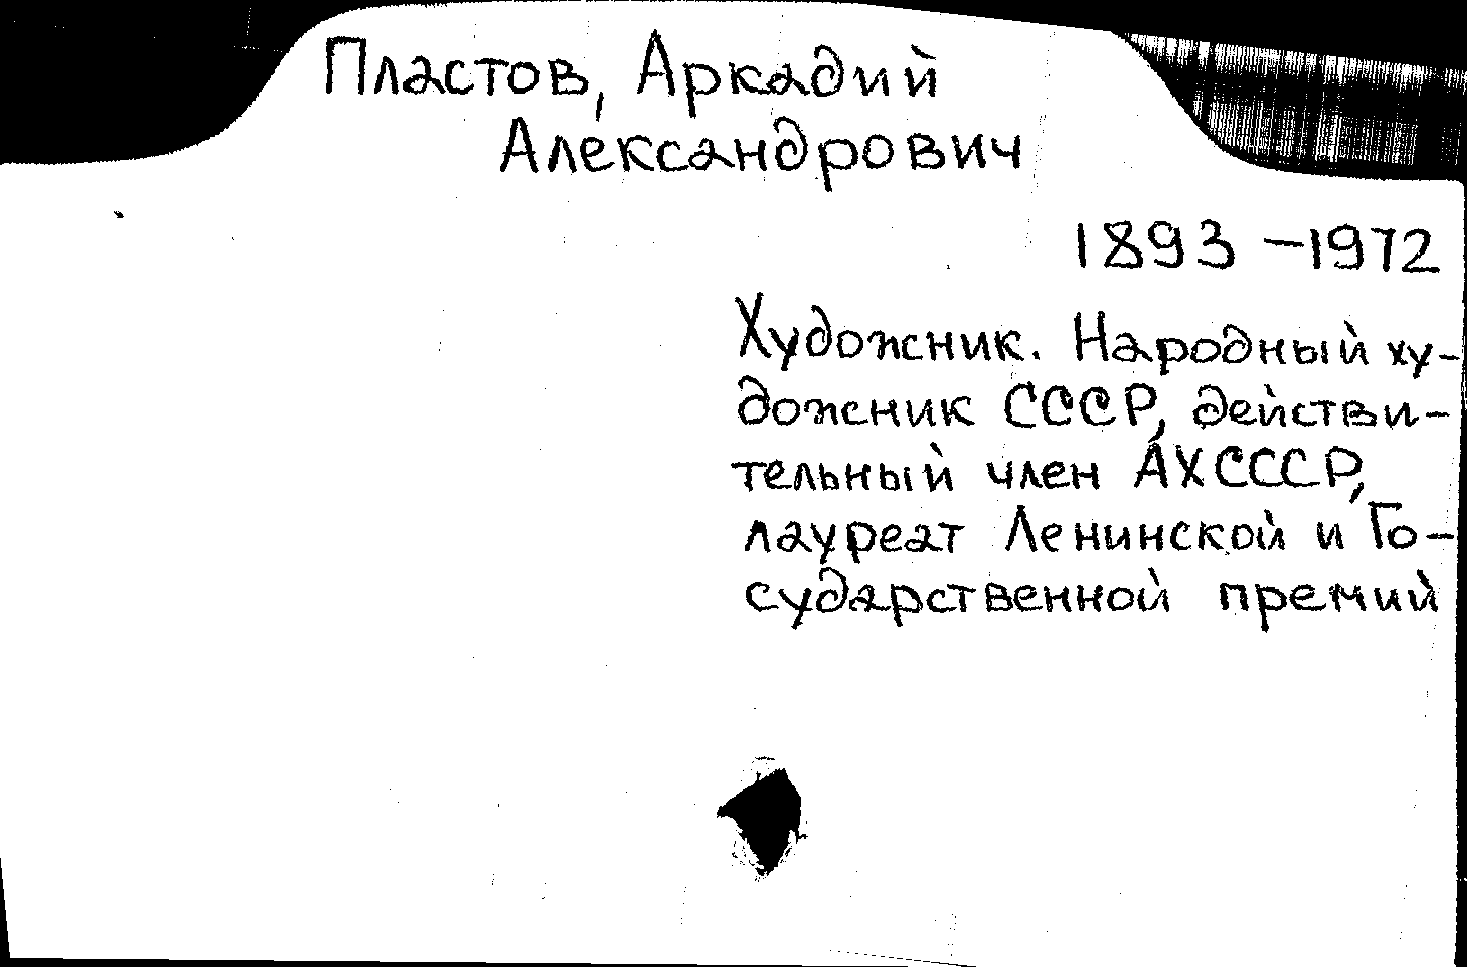 Пластов, Аркадий
Александрович
1893 – 1972
Художник. Народный ху-
дожник СССР, действи-
тельный член АХСССР,
лауреат Ленинской и Го-
сударственной премий